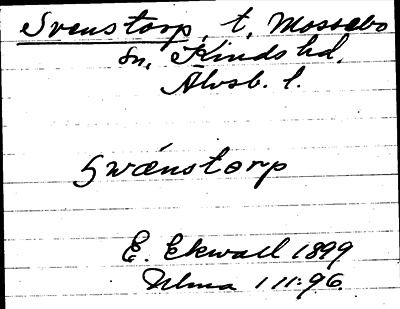 Svenstorp, t, Mossebo
sn, Kinds hd,
Älvsb. l.
Swänstorp
E. Ekwall 1899
Ulma 111:96.